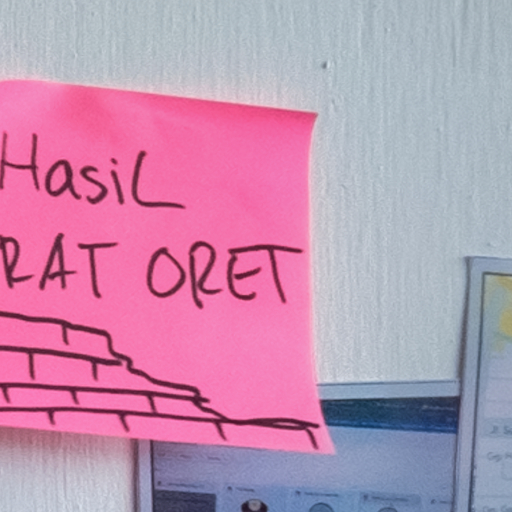 HasiL
RAT ORET